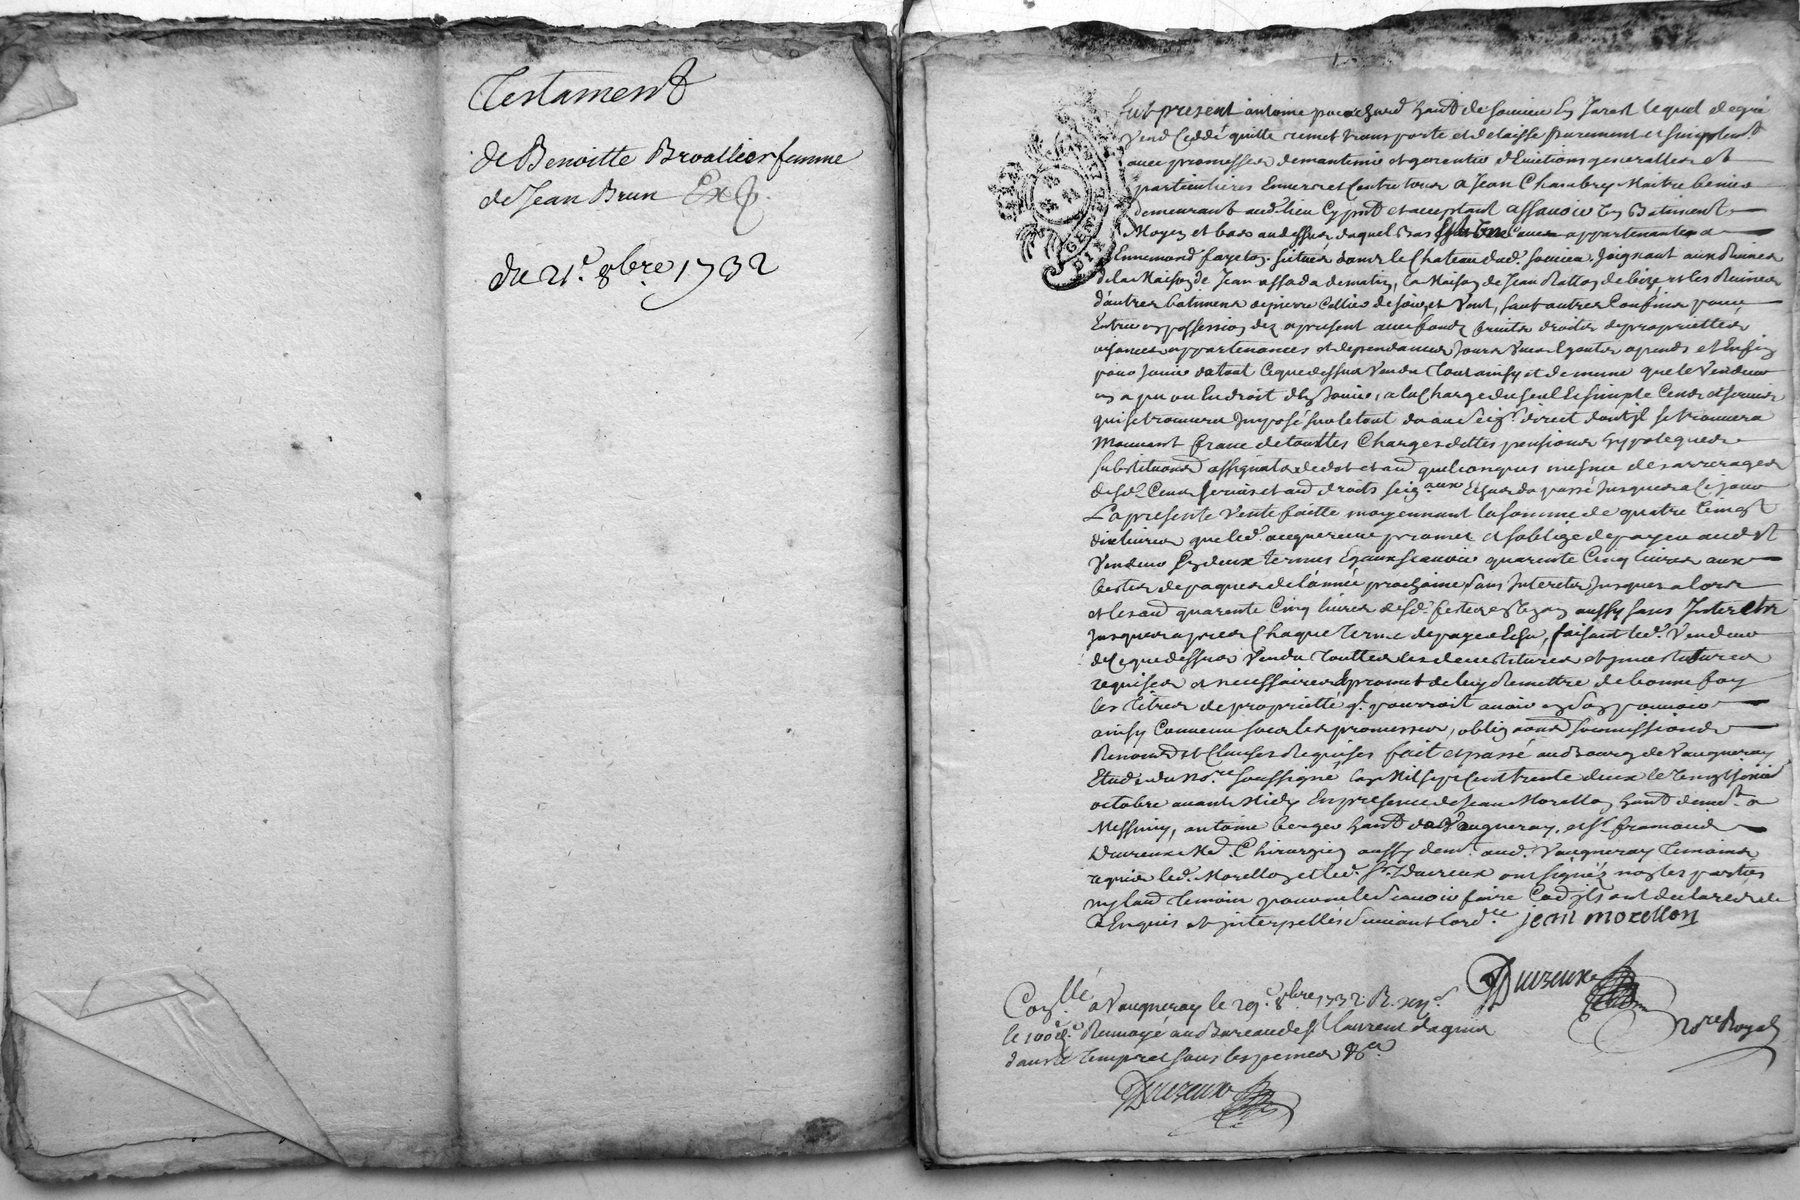 Testament
de Benoitte Brvallier femme
de Jean Brun Exp.
du 21e. 8bre 1732
fut present antoine habt de soucieu En Jarest lequel de gré
Vend Cedde quitte remet transporte et delaisse purement et simplement
avec promesses de maintenir et garentir d'Evictions generalles et
particulieres Envers et Contre tous a Jean Chambry Maitre
demeurant aud. lieu Cy pnt et acceptant assavoir Un Batiment
Moyen et bas au dessus duquel appartenante a
Ennemond fayeton situés dans le Chateau dud. soucieu Joignant aux Ruines
de la Maison de Jean assada de matin, la Maison de Jean Ratton de bize et les Ruines
d'autres batimens de pierre Collier de soir, et Vent, sauf autres Confins pour
Entrer en possession dez apresent avec fonds fruits droits de proprietté
aisances appartenances et dependances Jours Vues Egouts apends et Enfin
pour Jouir du tout Ceque dessus Vendu tout ainsy et de meme que le Vendeur
en a pu ou Eu droit d'En Jouir, a la Charge du seul et simple Cens et servis
qui se trouvera Imposé sur le tout du au Seigr. direct dont Il se trouvera
Mouvant franc de touttes Charges dettes pensions hypoteques
substitutions assignats de dot et aud quelconques mesme des arrerages
desd. Cens servis et aud droits seigaux Echus du passé Jusques a Ce Jour
La presente Vente faitte moyennant la somme de quatre Vingt
dix livres que led. acquereur promet et s'oblige de payer audit
Vendeur En deux termes Egaux scavoir quarente Cinq livres aux
festes de paques de l'année prochaine sans Interets Jusques alors
et les aud quarente Cinq livres desd. festes en Un an aussy sans Interets
Jusques apres Chaque terme de paye Echu, faisant led. Vendeur
de Ceque dessus Vendu touttes les devestitures et investitures
requises et necessaires promet de luy Remettre de bonne foy
les titres de proprietté ql. pourroit avoir En Son pouvoir
ainsy Convenu sous les promesses, obligaons soumissions
Renonons et Clauses Requises fait et passé au Bourg de Vaugneray
Etude du Nore. soussigné l'an Mil sept Cent trente deux le Vingt
octobre avant Midy En presence de Jean Morellon habt demt. a
Messimy, antoine berger habt de Vaugneray, et Sr.
Duvreux Me. Chirurgien aussy demt. aud. Vaugneray temoins
requis led. Morellon et led. Sr. Duvreux ont signés non les parties
ny laud temoin pour ne le scavoir faire Comme Ils ont declares de
Ce Enquis et Interpellés suivant l'ordce. jean morellon
Duvreux
Nore Royal
Conllé. a Vaugneray le 29e. 8bre 1732 R.
le 100e. d. Renvoyé au Bureau de St laurent dagnin
dans le temps et sous les peines &ca
Duvreux